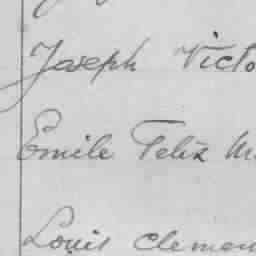 Joseph Victo
Emile Felix M
Louis Clemen